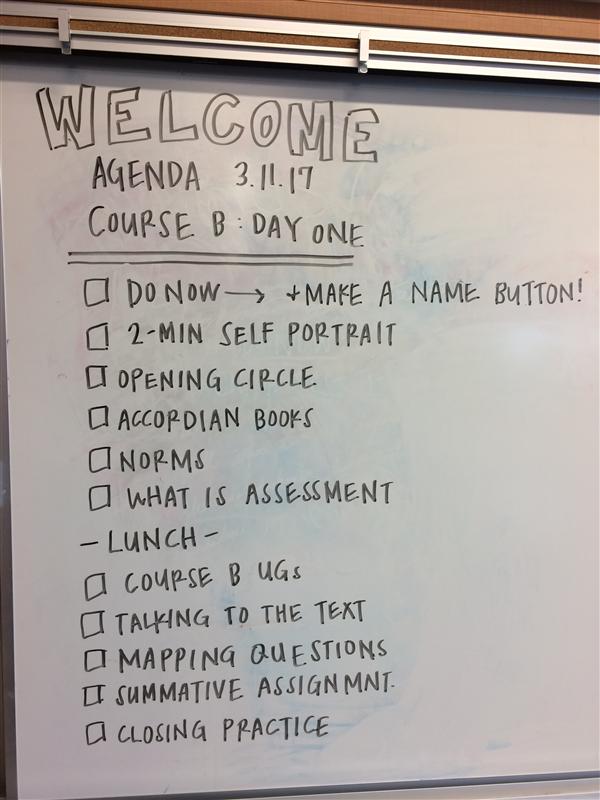 WELCOME
AGENDA 3.11.17
COURSE B: DAY ONE
☐ DO NOW → +MAKE A NAME BUTTON!
☐ 2-MIN SELF PORTRAIT
☐ OPENING CIRCLE
☐ ACCORDIAN BOOKS
☐ NORMS
☐ WHAT IS ASSESSMENT
- LUNCH -
☐ COURSE B UGs
☐ TALKING TO THE TEXT
☐ MAPPING QUESTIONS
☐ SUMMATIVE ASSIGNMNT.
☐ CLOSING PRACTICE